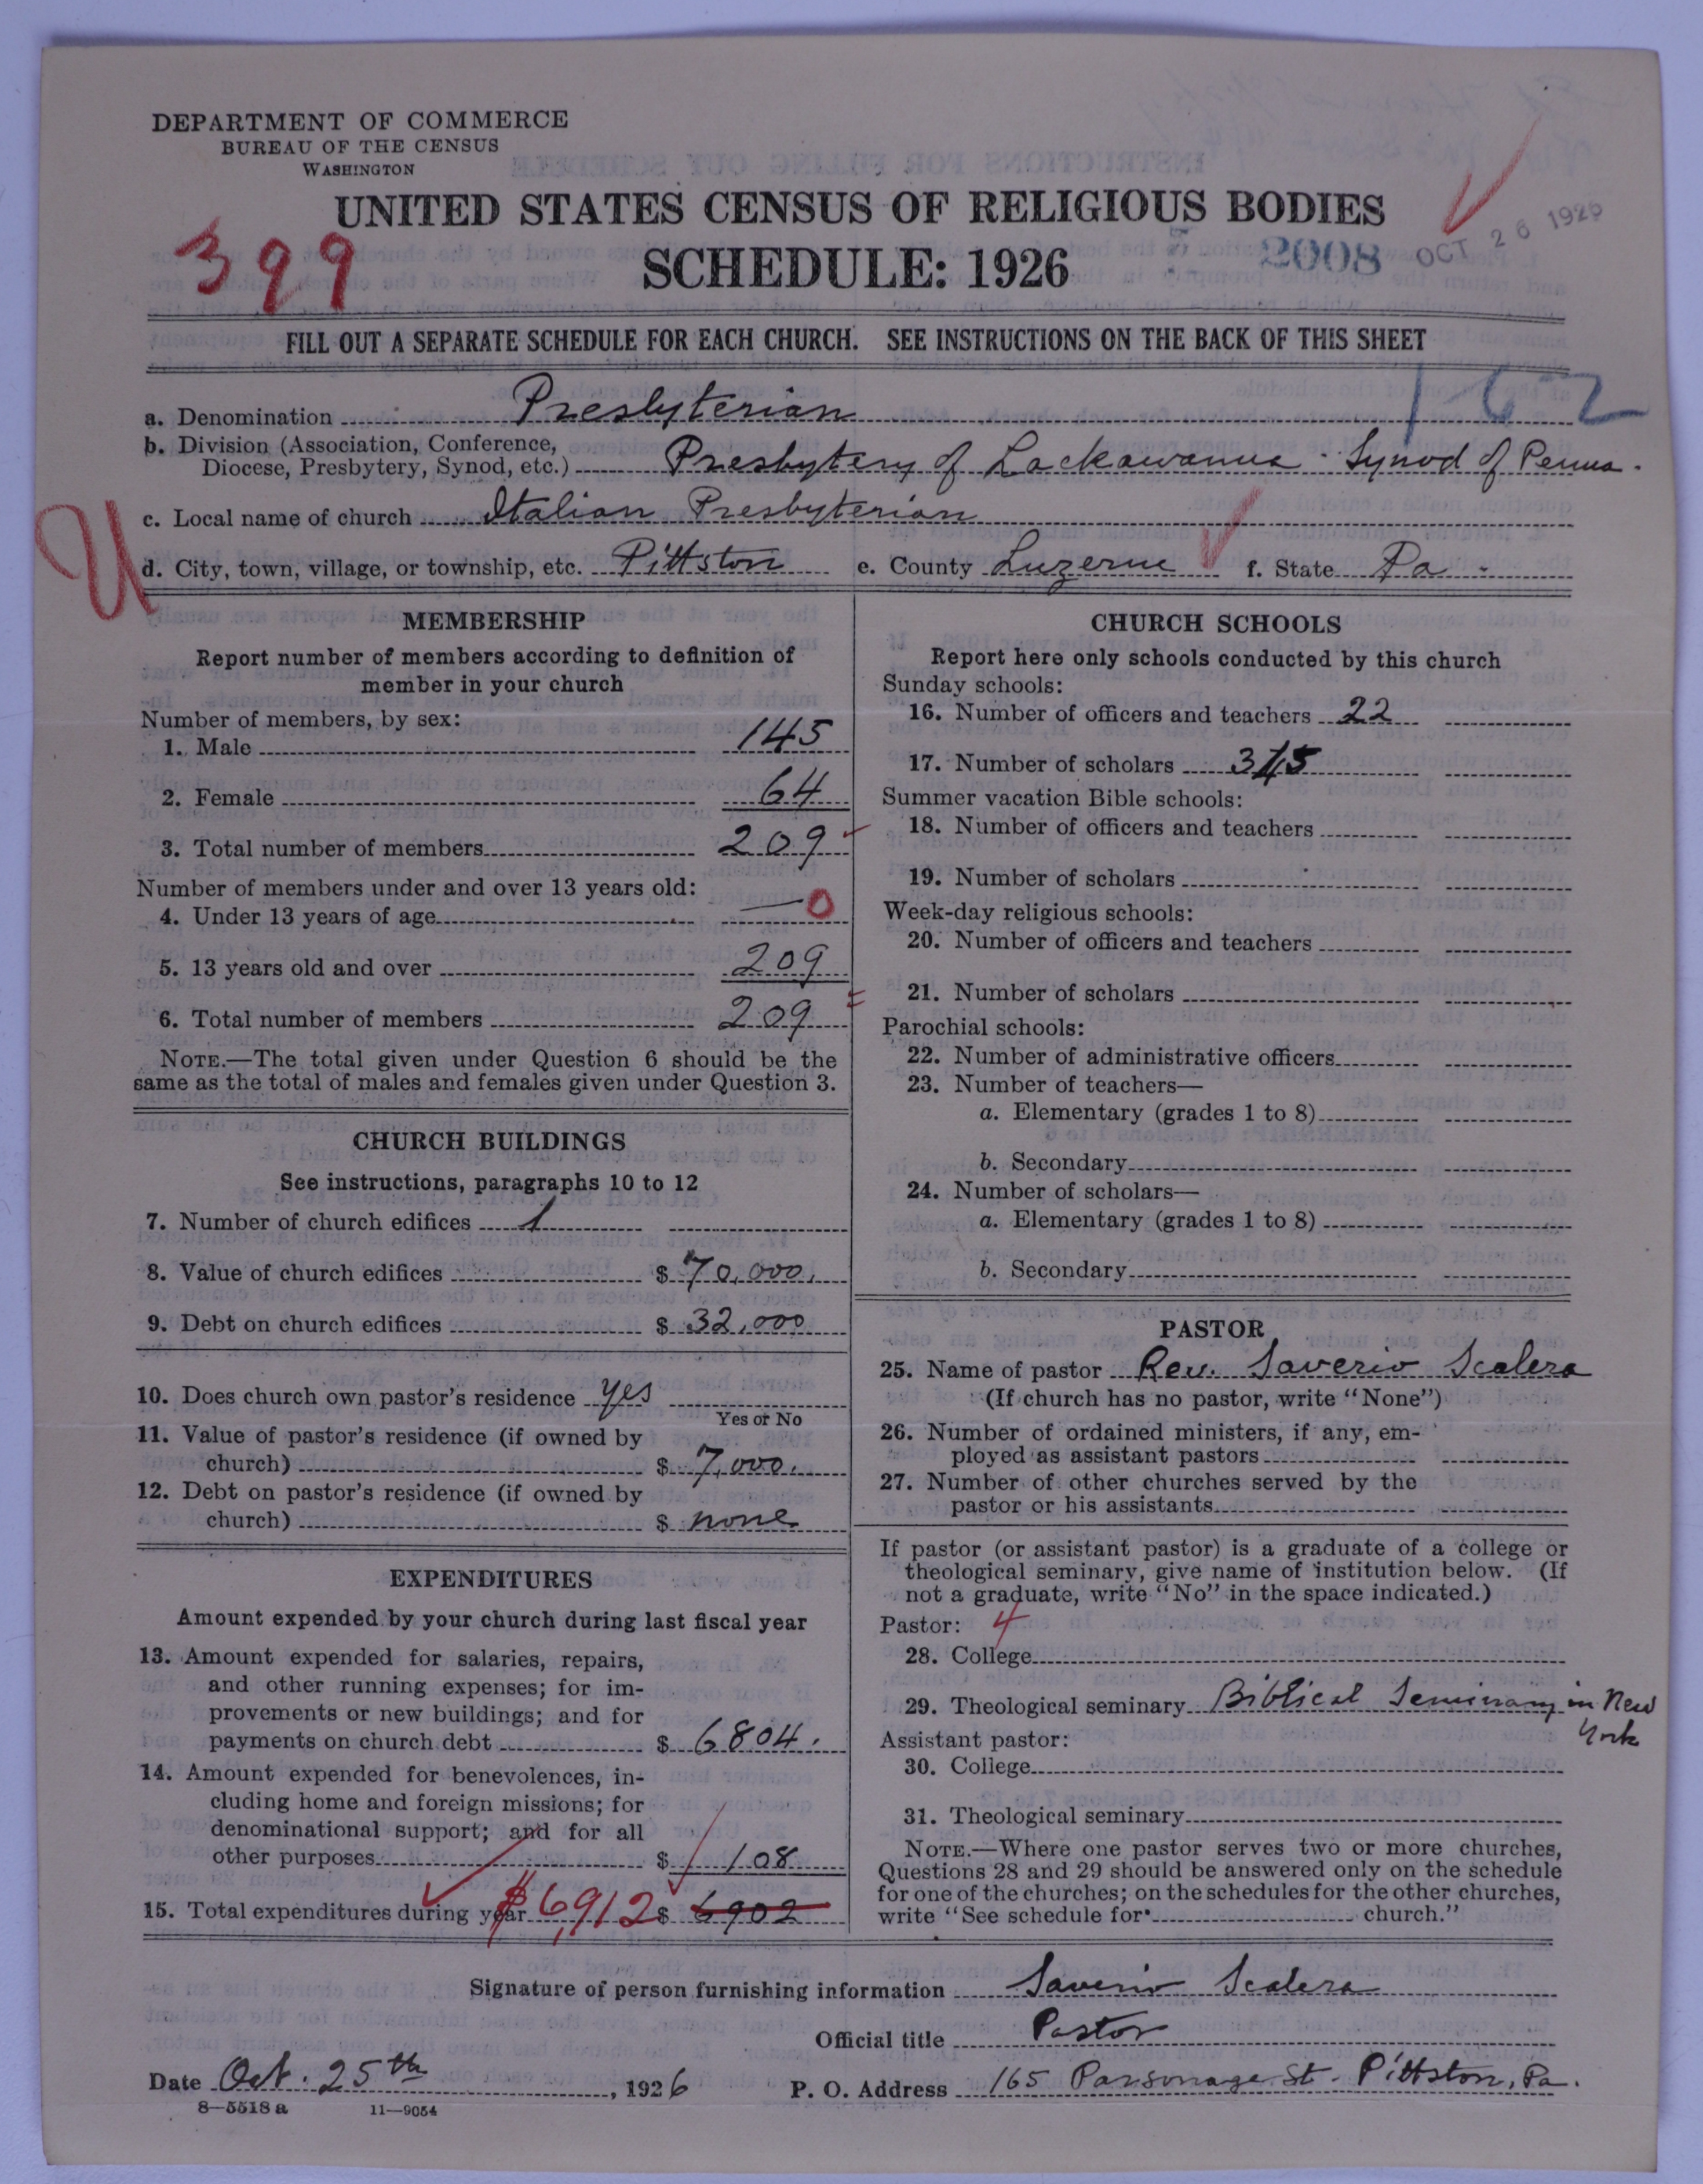 DEPARTMENT OF COMMERCE
BUREAU OF THE CENSUS
WASHINGTON
UNITED STATES CENSUS OF RELIGIOUS BODIES
399
SCHEDULE: 1926
2008
OCT 26 1926
FILL OUT A SEPARATE SCHEDULE FOR EACH CHURCH. SEE INSTRUCTIONS ON THE BACK OF THIS SHEET
1-62
a. Denomination Presbyterian
b. Division (Association, Conference,
Diocese, Presbytery, Synod, etc.) Presbytery of Lackawanna - Synod of Penna.
U
c. Local name of church Italian Presbyterian
d. City, town, village, or township, etc. Pittston e. County Luzerne f. State Pa.
MEMBERSHIP
Report number of members according to definition of
member in your church
Number of members, by sex:
1. Male 145
2. Female 64
3. Total number of members 209
Number of members under and over 13 years old:
4. Under 13 years of age — 0
5. 13 years old and over 209
6. Total number of members 209
NOTE.—The total given under Question 6 should be the
same as the total of males and females given under Question 3.
CHURCH BUILDINGS
See instructions, paragraphs 10 to 12
7. Number of church edifices 1
8. Value of church edifices $ 70,000.
9. Debt on church edifices $ 32,000
10. Does church own pastor's residence yes
Yes or No
11. Value of pastor's residence (if owned by
church) $ 7,000.
12. Debt on pastor's residence (if owned by
church) $ none
EXPENDITURES
Amount expended by your church during last fiscal year
13. Amount expended for salaries, repairs,
and other running expenses; for im-
provements or new buildings; and for
payments on church debt $ 6804.
14. Amount expended for benevolences, in-
cluding home and foreign missions; for
denominational support; and for all
other purposes $ 108
15. Total expenditures during year $6,912 $ 6902
CHURCH SCHOOLS
Report here only schools conducted by this church
Sunday schools:
16. Number of officers and teachers 22
17. Number of scholars
Summer vacation Bible schools:
18. Number of officers and teachers
19. Number of scholars
Week-day religious schools:
20. Number of officers and teachers
21. Number of scholars
Parochial schools:
22. Number of administrative officers
23. Number of teachers—
a. Elementary (grades 1 to 8)
b. Secondary
24. Number of scholars—
a. Elementary (grades 1 to 8)
b. Secondary
PASTOR
25. Name of pastor Rev. Saverio Scalera
(If church has no pastor, write "None")
26. Number of ordained ministers, if any, em-
ployed as assistant pastors
27. Number of other churches served by the
pastor or his assistants
If pastor (or assistant pastor) is a graduate of a college or
theological seminary, give name of institution below. (If
not a graduate, write "No" in the space indicated.)
Pastor: 4
28. College
29. Theological seminary Biblical Seminary in New
York
Assistant pastor:
30. College
31. Theological seminary
NOTE.—Where one pastor serves two or more churches,
Questions 28 and 29 should be answered only on the schedule
for one of the churches; on the schedules for the other churches,
write "See schedule for church."
Signature of person furnishing information Saverio Scalera
Official title Pastor
Date Oct. 25th, 1926 P. O. Address 165 Parsonage St. Pittston, Pa.
8—5518 a 11—9054